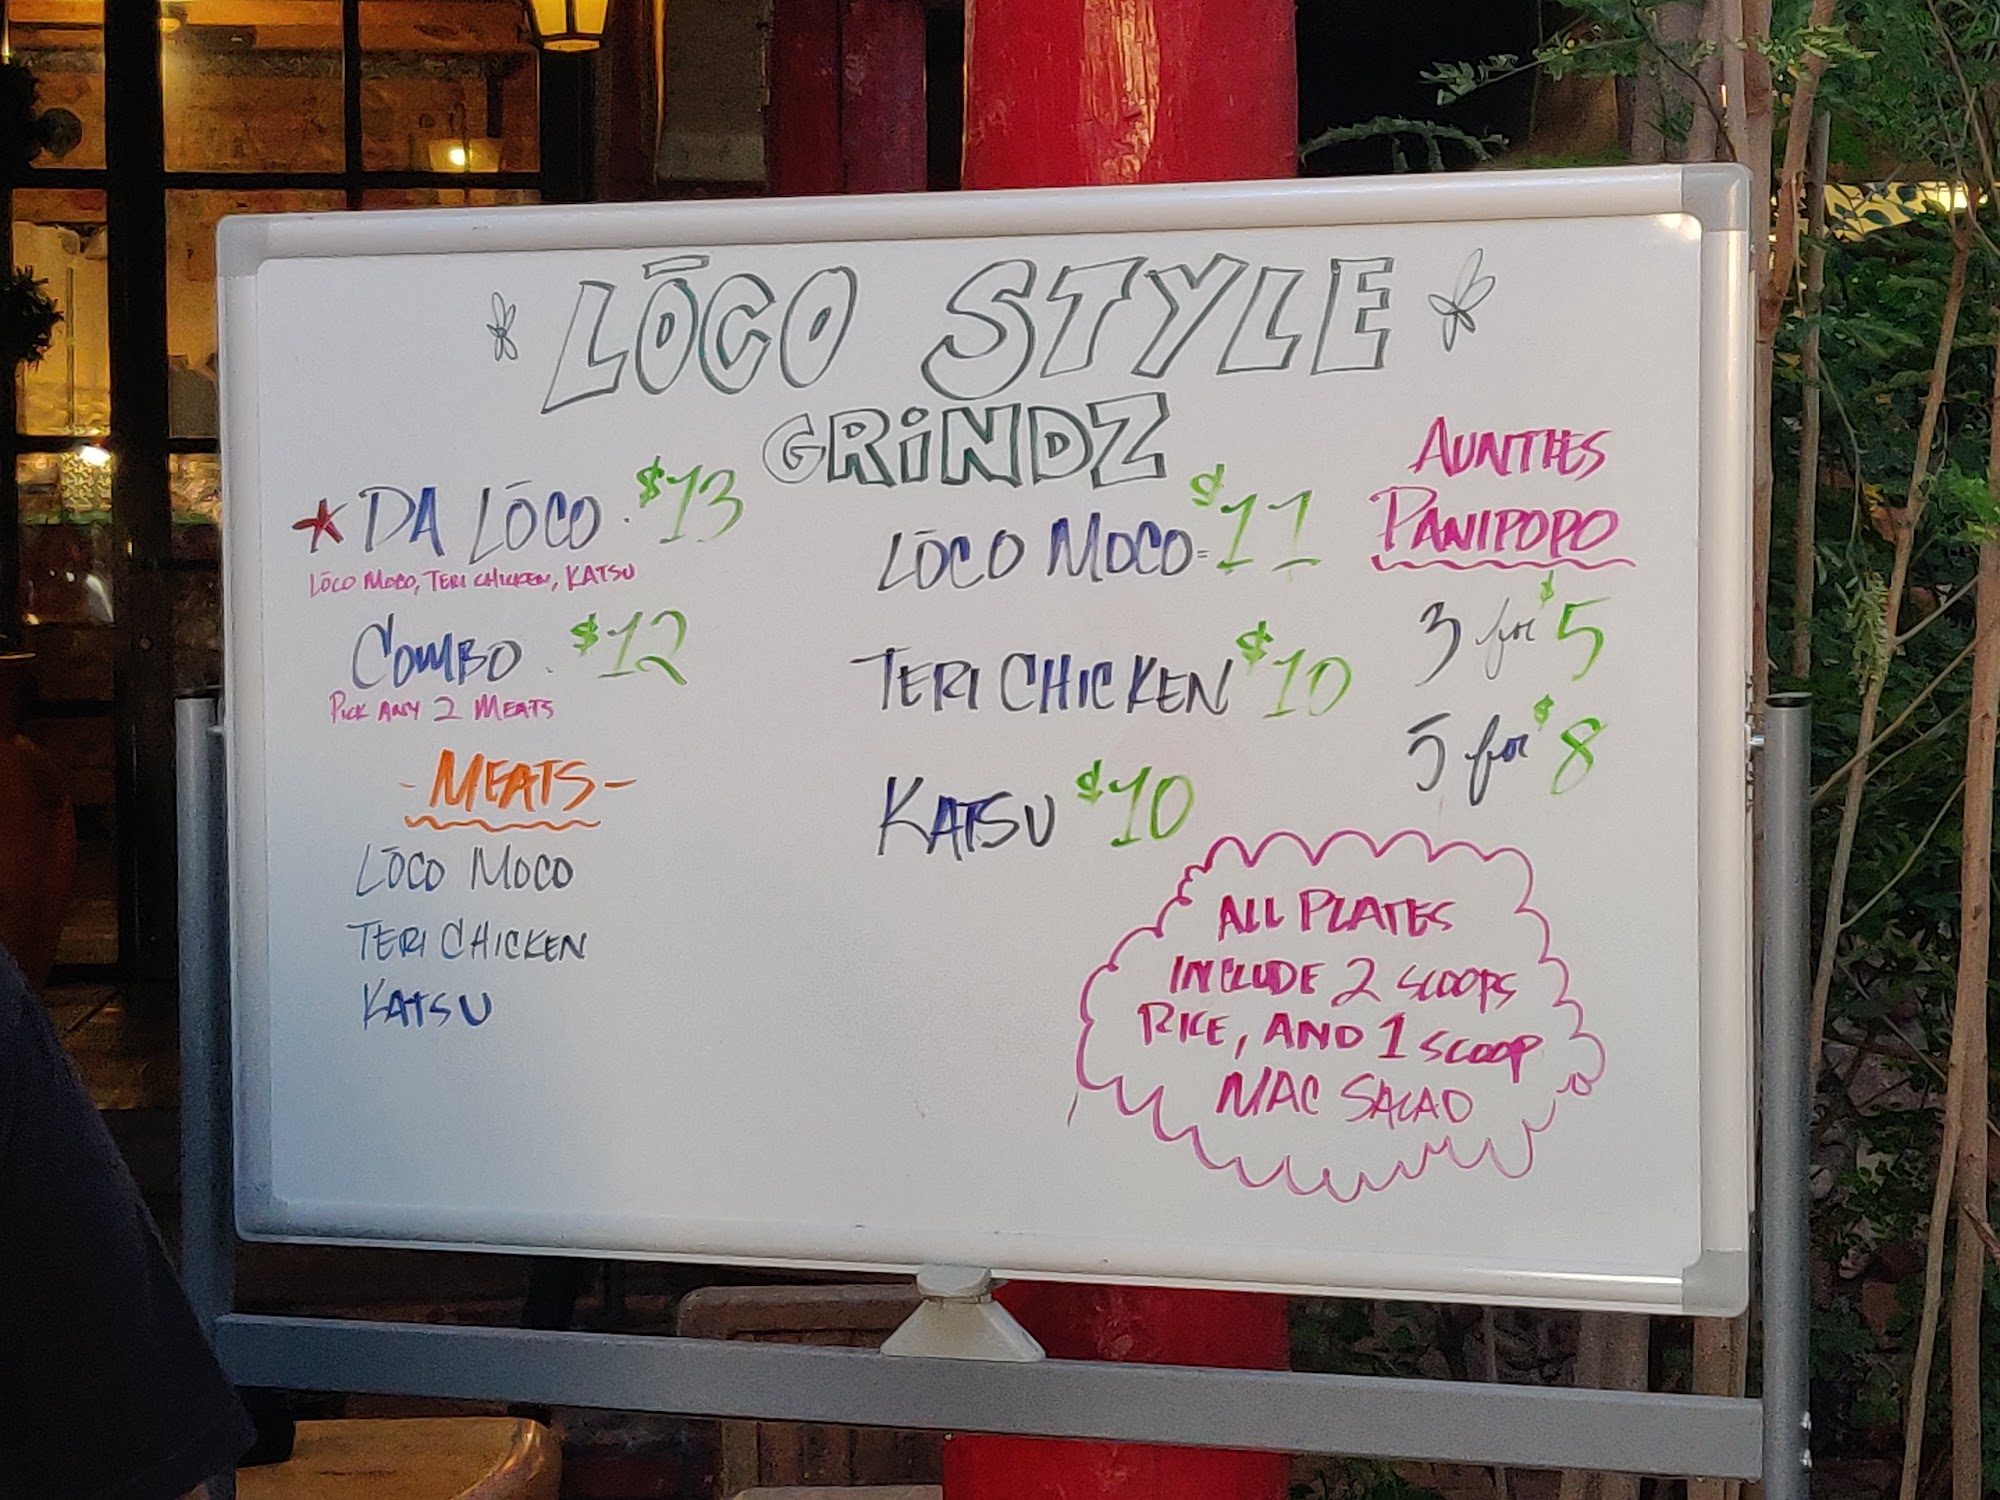 LŌCO STYLE
GRiNDZ
DA LŌCO . $13
LŌCO MOCO, TERI CHICKEN, KATSU
COMBO . $12
PICK ANY 2 MEATS
- MEATS -
LŌCO MOCO
TERI CHICKEN
KATSU
LŌCO MOCO = $11
TERI CHICKEN $10
KATSU $10
AUNTIES
PANIPOPO
3 for $5
5 for $8
ALL PLATES
INCLUDE 2 SCOOPS
RICE, AND 1 SCOOP
MAC SALAD